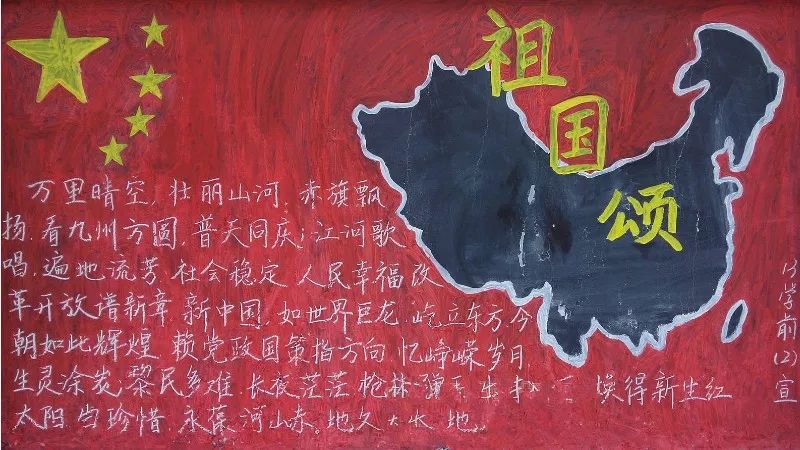 祖国颂
万里晴空,壮丽山河,赤旗飘
扬.看九州方圆,普天同庆;江河歌
唱,遍地流芳.社会稳定 人民幸福 改
革开放谱新章.新中国,如世界巨龙.屹立东方.今
朝如此辉煌 赖党政国策指方向.忆峥嵘岁月
生灵涂炭;黎民多难.长夜茫茫 枪林弹 换得新生红
太阳.当珍惜.永葆河山赤。地久 地
学前(2)宣